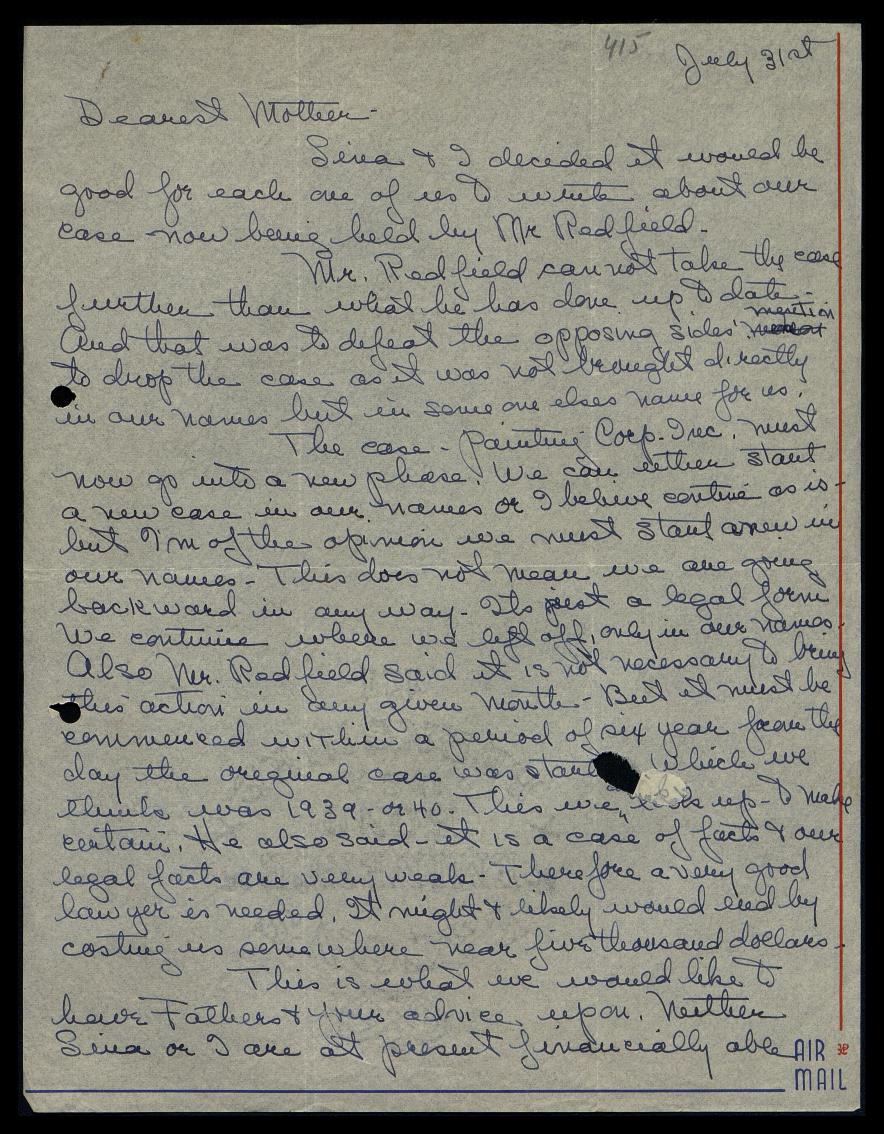 415
July 31st
Dearest Mother-
Sina & I decided it would be
good for each one of us to write about our
case now being held by Mr Redfield.
Mr. Redfield cannot take the case
further than what he has done up to date-
mention
And that was to defeat the opposing sides'
to drop the case as it was not brought directly
in our names but in some one elses name for us.
The case - Painting Corp. Inc. must
now go into a new phase. We can either start
a new case in our names or I believe continue as is-
but I'm of the opinion we must start anew in
our names- This does not mean we are going
backward in any way- Its just a legal form
We continue where we left off, only in our names.
Also Mr. Redfield said it is not necessary to bring
this action in any given month- But it must be
commenced within a period of six year from the
day the original case was start which we
think was 1939-or 40. This we up-to make
certain. He also said-it is a case of facts & our
legal facts are very weak- Therefore a very good
lawyer is needed. It might & likely would end by
costing us somewhere near five thousand dollars-
This is what we would like to
have Fathers & your advice, upon. Neither
Sina or I are at present financially able
AIR
MAIL